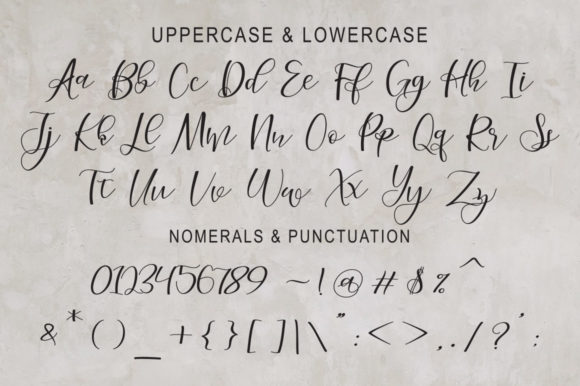 UPPERCASE & LOWERCASE
Aa Bb Cc Dd Ee Ff Gg Hh Ii
Jj Kk Ll Mm Nn Oo Pp Qq Rr Ss
Tt Uu Vv Ww Xx Yy Zz
NOMERALS & PUNCTUATION
0123456789 ~!@#$%^
&*()_+{}[]|\":<>,./?':